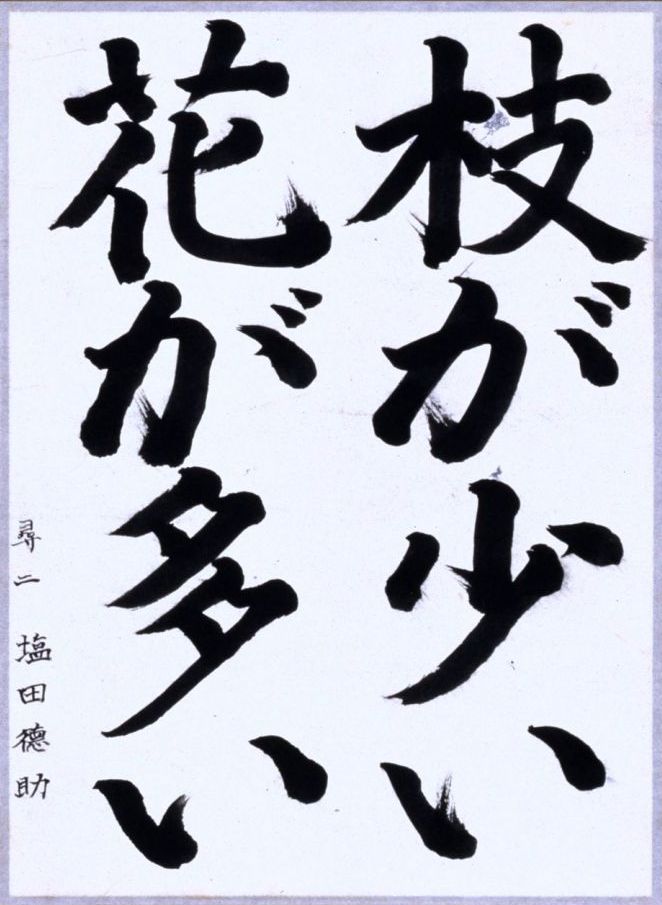 枝が少い
花が多い
尋二 塩田德助